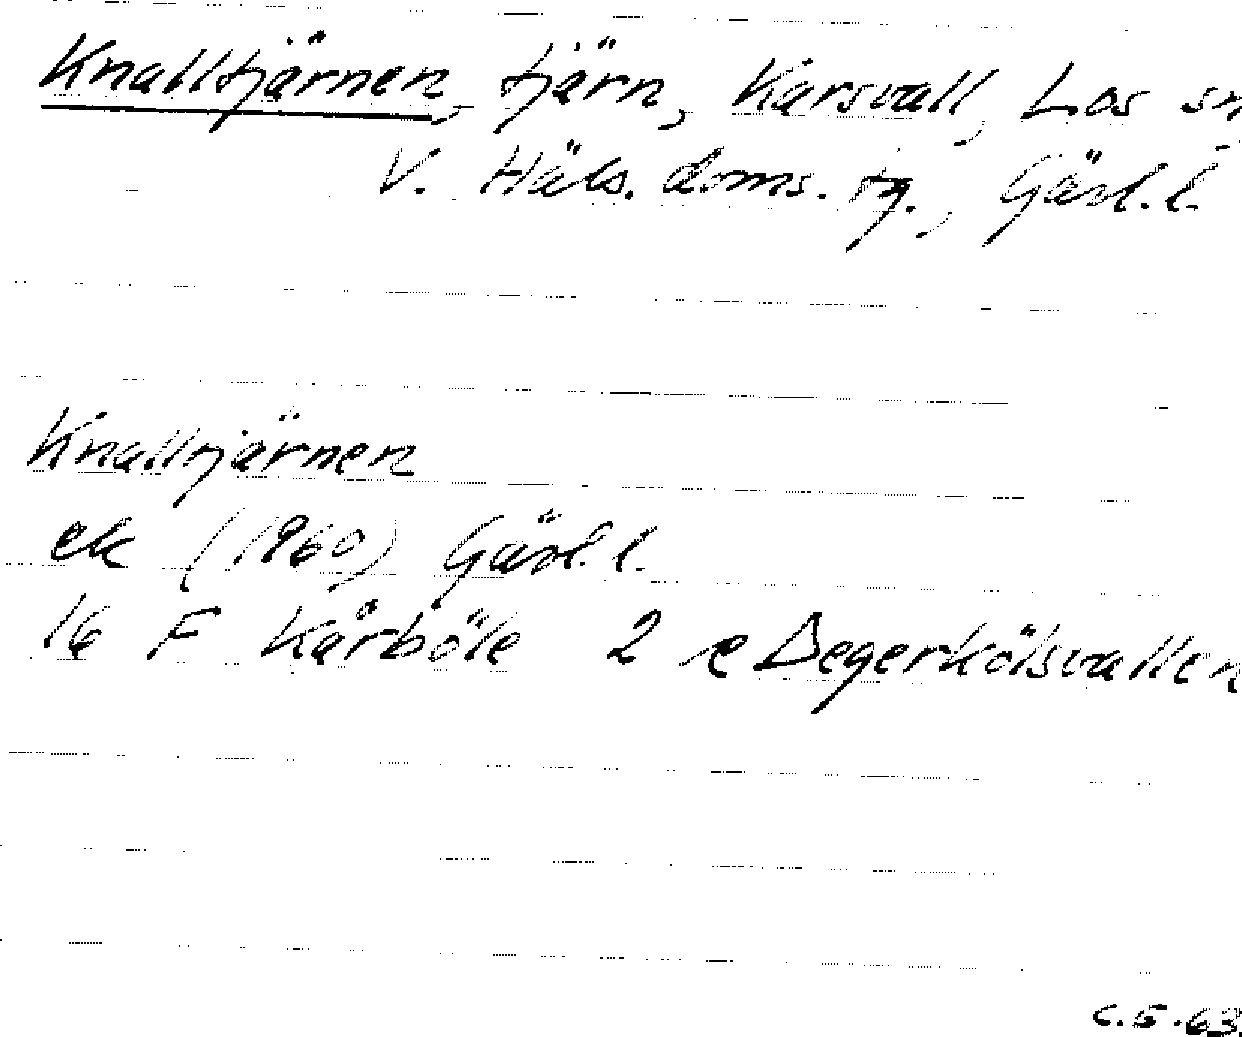 Knalltjärnen, tjärn, Karsvall, Los sn
V. Häls. doms. tg., Gävl. l.
Knalltjärnen
ek (1960) Gävl. l.
16 F Kårböle 2 e Degerkölsvallen
C.5.63.